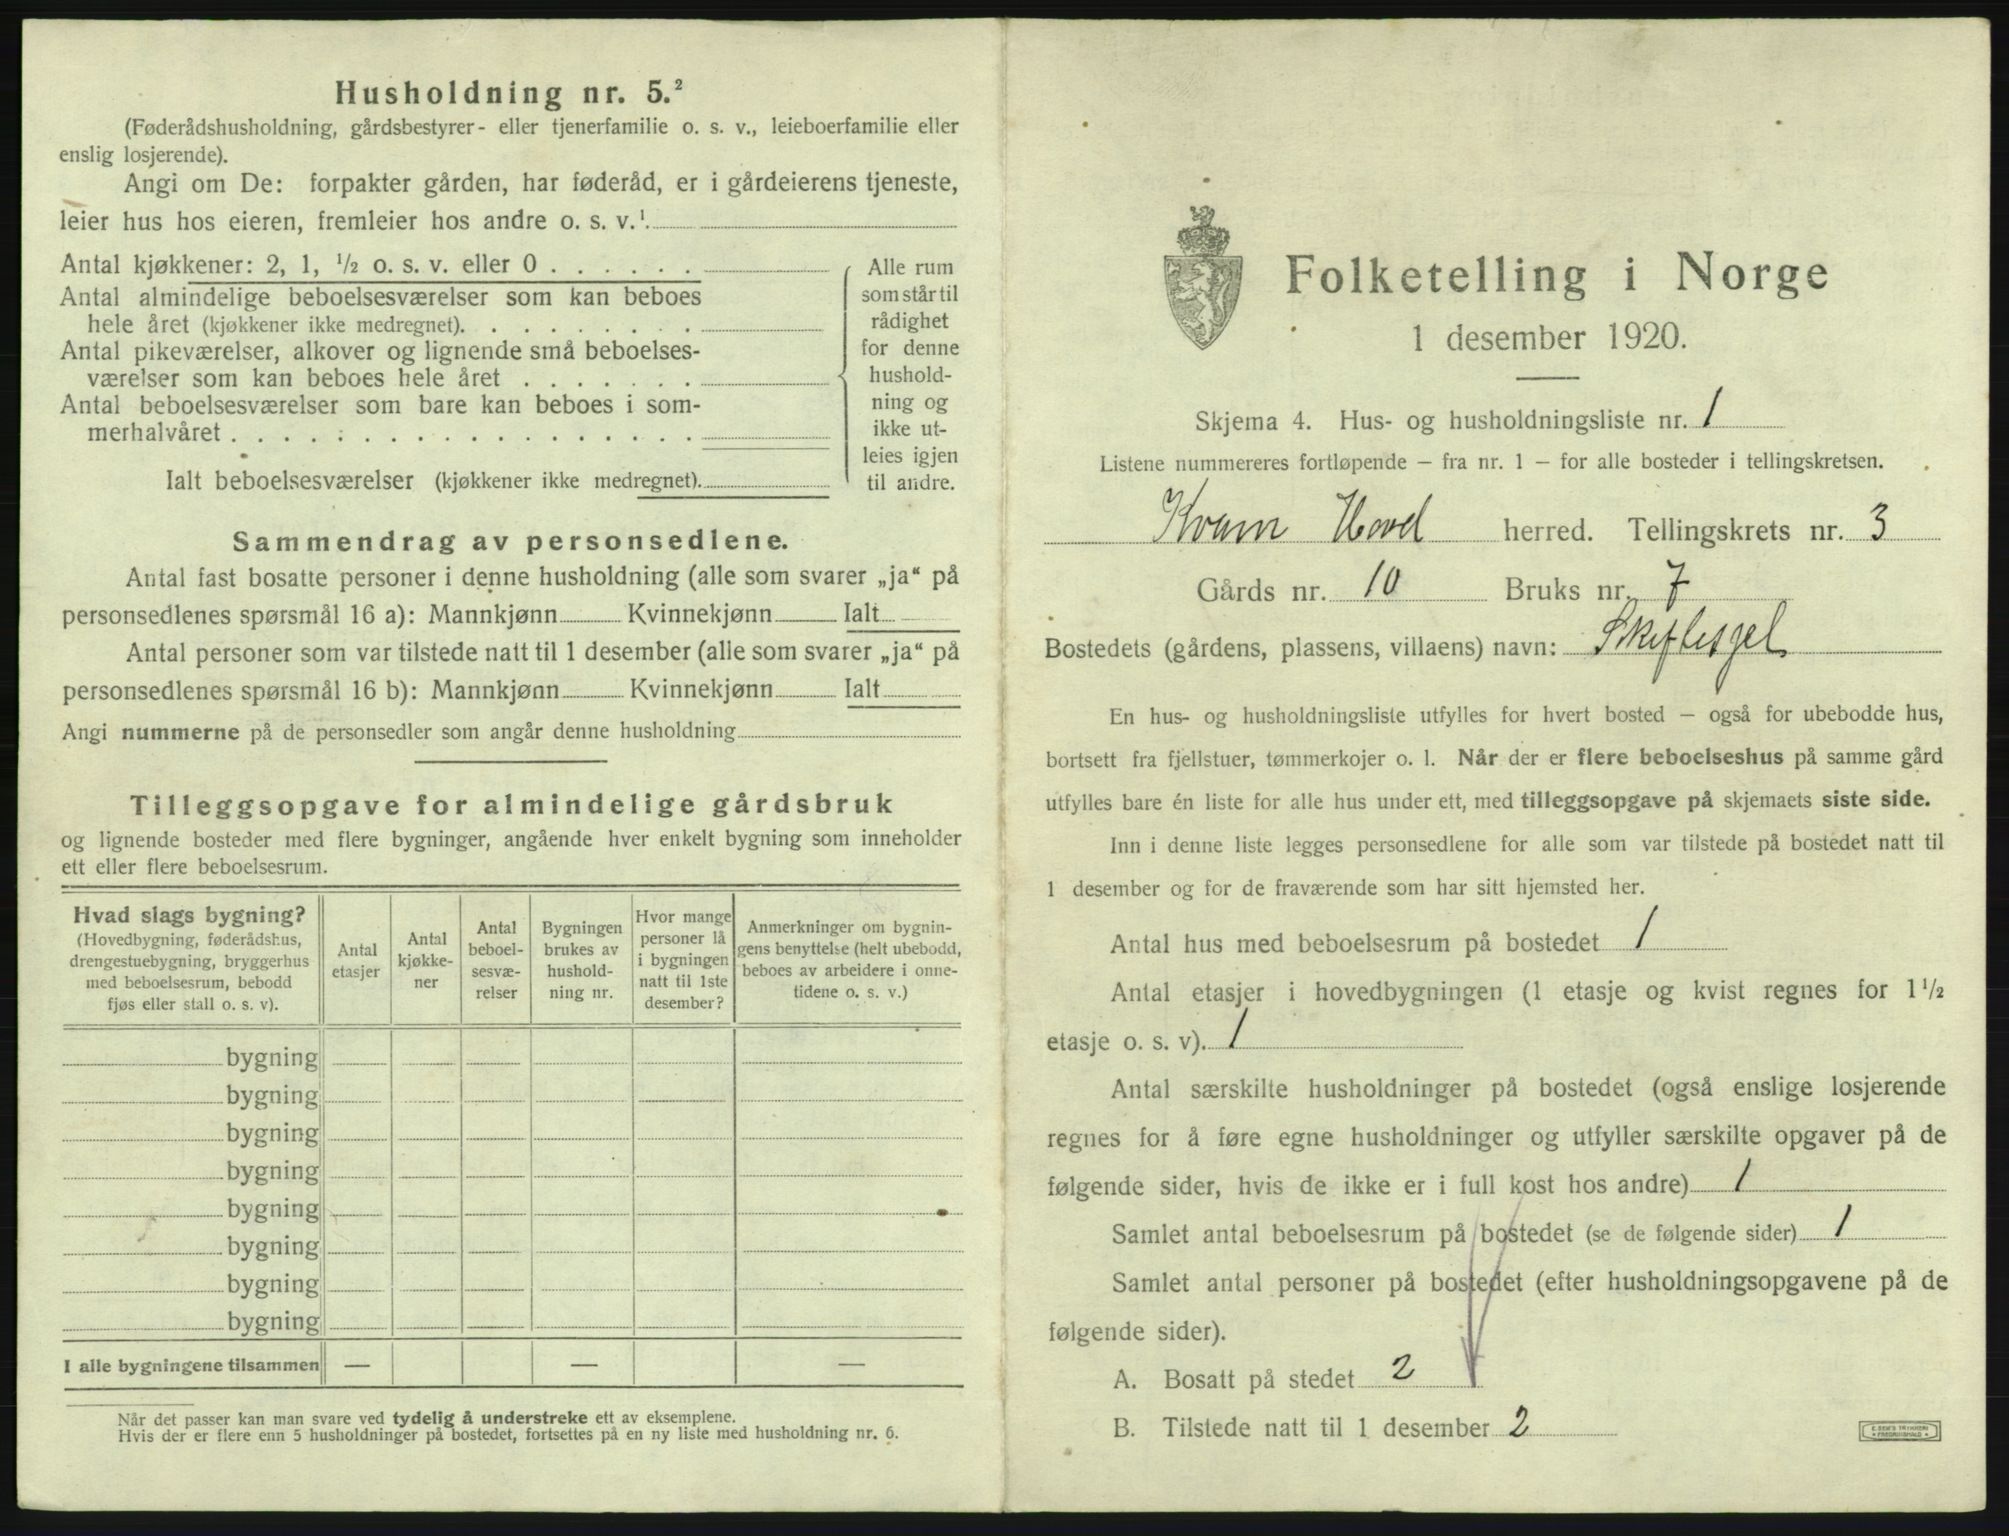 Husholdning nr. 5.²
(Føderådshusholdning, gårdsbestyrer- eller tjenerfamilie o. s. v., leieboerfamilie eller
enslig losjerende).
Angi om De: forpakter gården, har føderåd, er i gårdeierens tjeneste,
leier hus hos eieren, fremleier hos andre o. s. v.¹
Antal kjøkkener: 2, 1, ½ o. s. v. eller 0
Antal almindelige beboelsesværelser som kan beboes
hele året (kjøkkener ikke medregnet).
Antal pikeværelser, alkover og lignende små beboelses-
værelser som kan beboes hele året
Antal beboelsesværelser som bare kan beboes i som-
merhalvåret
Ialt beboelsesværelser (kjøkkener ikke medregnet).
Alle rum
som står til
rådighet
for denne
hushold-
ning og
ikke ut-
leies igjen
til andre.
Sammendrag av personsedlene.
Antal fast bosatte personer i denne husholdning (alle som svarer „ja“ på
personsedlenes spørsmål 16 a): Mannkjønn Kvinnekjønn Ialt
Antal personer som var tilstede natt til 1 desember (alle som svarer „ja“ på
personsedlenes spørsmål 16 b): Mannkjønn Kvinnekjønn Ialt
Angi nummerne på de personsedler som angår denne husholdning
Tilleggsopgave for almindelige gårdsbruk
og lignende bosteder med flere bygninger, angående hver enkelt bygning som inneholder
ett eller flere beboelsesrum.
Hvad slags bygning?
(Hovedbygning, føderådshus,
drengestuebygning, bryggerhus
med beboelsesrum, bebodd
fjøs eller stall o. s. v).
Antal
etasjer
Antal
kjøkke-
ner
Antal
beboel-
sesvæ-
relser
Bygningen
brukes av
hushold-
ning nr.
Hvor mange
personer lå
i bygningen
natt til 1ste
desember?
Anmerkninger om bygnin-
gens benyttelse (helt ubebodd,
beboes av arbeidere i onne-
tidene o. s. v.)
bygning
bygning
bygning
bygning
bygning
bygning
bygning
bygning
I alle bygningene tilsammen — — —
Når det passer kan man svare ved tydelig å understreke ett av eksemplene.
Hvis der er flere enn 5 husholdninger på bostedet, fortsettes på en ny liste med husholdning nr. 6.
Folketelling i Norge
1 desember 1920.
Skjema 4. Hus- og husholdningsliste nr. 1
Listene nummereres fortløpende – fra nr. 1 – for alle bosteder i tellingskretsen.
Kvam Hord herred. Tellingskrets nr. 3
Gårds nr. 10 Bruks nr. 7
Bostedets (gårdens, plassens, villaens) navn: Skiftesjel
En hus- og husholdningsliste utfylles for hvert bosted – også for ubebodde hus,
bortsett fra fjellstuer, tømmerkojer o. l. Når der er flere beboelseshus på samme gård
utfylles bare én liste for alle hus under ett, med tilleggsopgave på skjemaets siste side.
Inn i denne liste legges personsedlene for alle som var tilstede på bostedet natt til
1 desember og for de fraværende som har sitt hjemsted her.
Antal hus med beboelsesrum på bostedet 1
Antal etasjer i hovedbygningen (1 etasje og kvist regnes for 1½
etasje o. s. v). 1
Antal særskilte husholdninger på bostedet (også enslige losjerende
regnes for å føre egne husholdninger og utfyller særskilte opgaver på de
følgende sider, hvis de ikke er i full kost hos andre) 1
Samlet antal beboelsesrum på bostedet (se de følgende sider) 1
Samlet antal personer på bostedet (efter husholdningsopgavene på de
følgende sider).
A. Bosatt på stedet 2
B. Tilstede natt til 1 desember 2